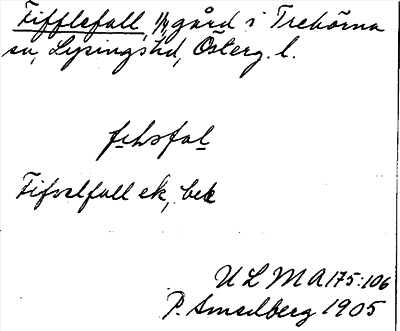 Fifflefall, 1/1 gård i Trehörna
sn, Lysings hd, Österg. l.
Fifvelfall ek, bek
ULMA 175:106
P. Amselberg 1905